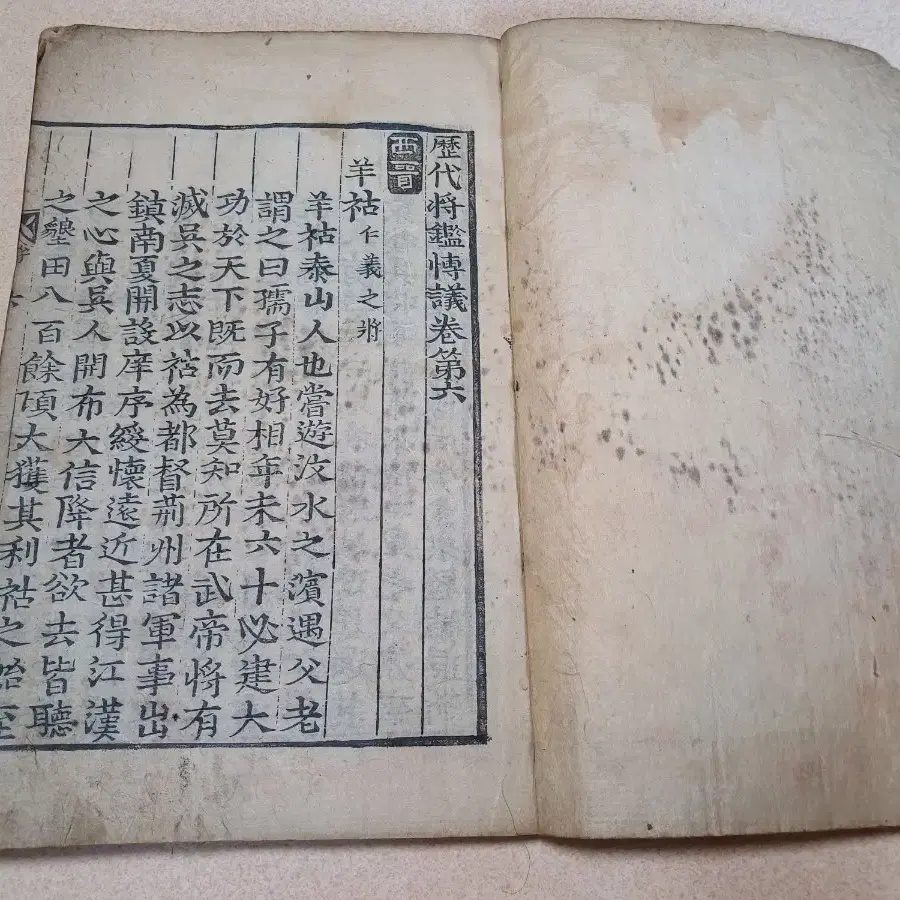 歷代将鑑愽議卷第六
西晋
羊祜仁義之將
羊祜泰山人也嘗遊汶水之濵遇父老
謂之曰孺子有好相年未六十必建大
功於天下既而去莫知所在武帝将有
滅吳之志以祜為都督荊州諸軍事出
鎮南夏開設庠序綏懷遠近甚得江漢
之心與吳人開布大信降者欲去皆聽
之墾田八百餘頃大獲其利祜之始至